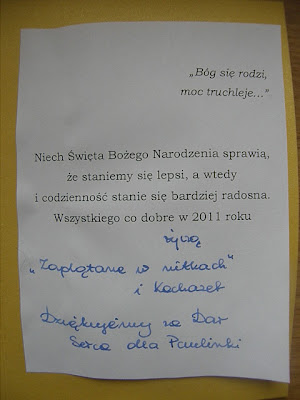 „Bóg się rodzi,
moc truchleje…”
Niech Święta Bożego Narodzenia sprawią,
że staniemy się lepsi, a wtedy
i codzienność stanie się bardziej radosna.
Wszystkiego co dobre w 2011 roku
życzą
„Zaplątane w nitkach"
i Kochazet
Dziękujemy za Dar
Serca dla Paulinki